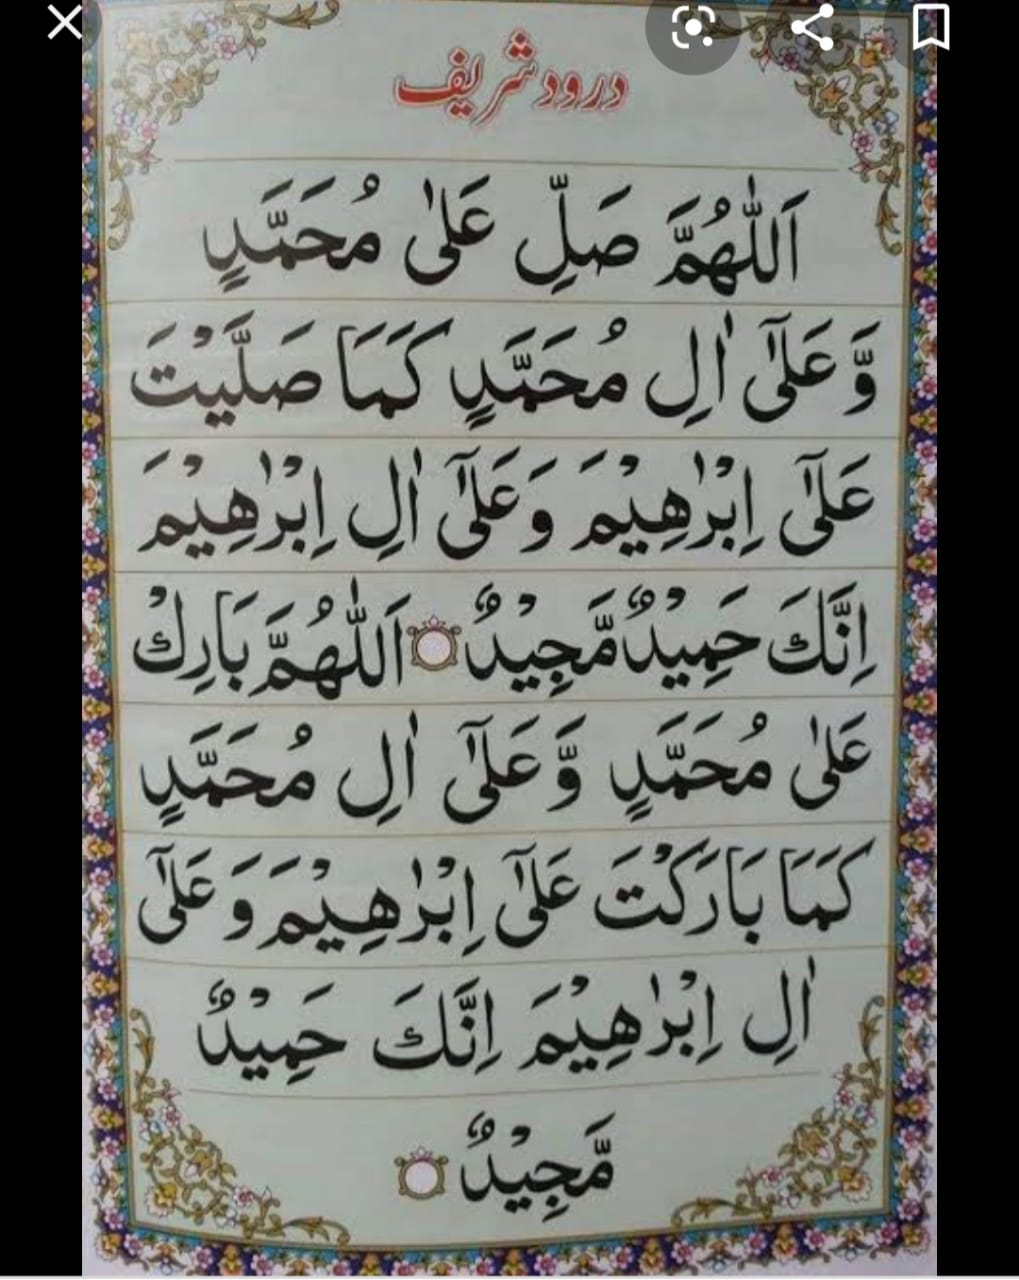 درود شریف
اَللّٰهُمَّ صَلِّ عَلٰى مُحَمَّدٍ
وَّعَلٰٓى اٰلِ مُحَمَّدٍ كَمَا صَلَّيْتَ
عَلٰٓى اِبْرٰهِيْمَ وَعَلٰٓى اٰلِ اِبْرٰهِيْمَ
اِنَّكَ حَمِيْدٌ مَّجِيْدٌ اَللّٰهُمَّ بَارِكْ
عَلٰى مُحَمَّدٍ وَّعَلٰٓى اٰلِ مُحَمَّدٍ
كَمَا بَارَكْتَ عَلٰٓى اِبْرٰهِيْمَ وَعَلٰٓى
اٰلِ اِبْرٰهِيْمَ اِنَّكَ حَمِيْدٌ
مَّجِيْدٌ